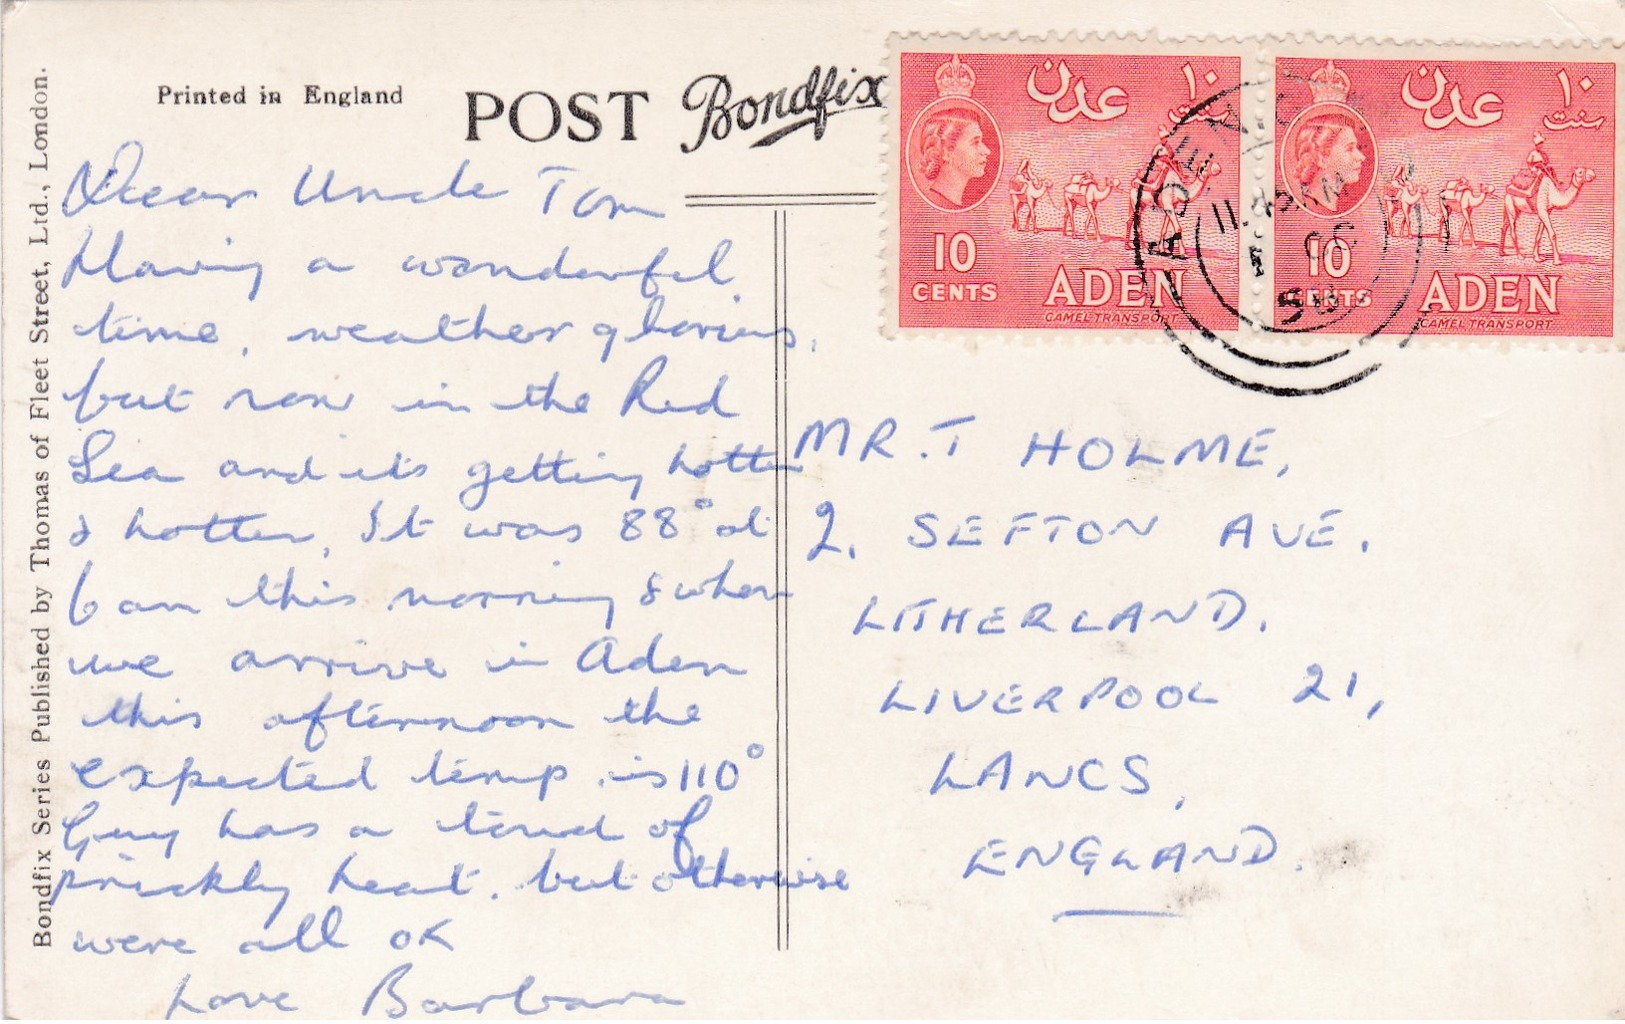 Printed in England
POST Bondfix
Bondfix Series Published by Thomas of Fleet Street, Ltd., London.
Dear Uncle Tom
Having a wonderful
time, weather glorius,
but now in the Red
Sea and it's getting hotter
& hotter, It was 88° at
6 am this morning & when
we arrive in Aden
this afternoon the
expected temp. is 110°
Guy has a touch of
prickly heat, but otherwise
were all OK
Love Barbara
عدن ١٠ سنت
10
CENTS ADEN
CAMEL TRANSPORT
عدن ١٠ سنت
10
CENTS ADEN
CAMEL TRANSPORT
ADEN
OC
MR. T HOLME,
2, SEFTON AVE.
LITHERLAND.
LIVERPOOL 21,
LANCS,
ENGLAND.